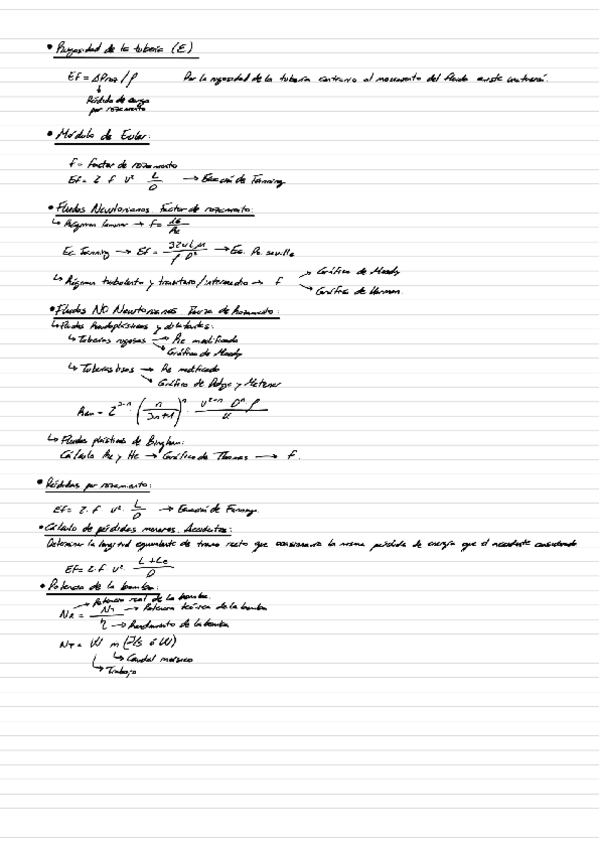 • Rugosidad de la tubería (E)
Ef = ΔProz / ρ Por la rugosidad de la tubería contrario al movimiento del fluido existe
Pérdida de carga
por rozamiento
• Módulo de Euler:
f = factor de rozamiento
Ef = 2 f v² L/D → Ecuación de Fanning
• Fluidos Newtonianos. Factor de rozamiento:
↳ Régimen laminar → f = 16/Re
Ec. Fanning → Ef = 32 v L μ / ρ D² → Ec. Po.
↳ Régimen turbulento y transitorio/intermedio → f → Gráfica de Moody
→ Gráfica de Karman.
• Fluidos NO Newtonianos de Rozamiento:
↳ Fluidos Pseudoplásticos y dilatantes:
↳ Tuberías rugosas → Re modificado
→ Gráfica de Moody
↳ Tuberías lisas → Re modificado
→ Gráfico de Dodge y Metzner
= 2³⁻ⁿ · (n / 3n+1)ⁿ · v²⁻ⁿ Dⁿ ρ / K
↳ Fluidos plásticos de Bingham:
Cálculo Re y He → Gráfico de Thomas → f.
• Pérdidas por rozamiento:
Ef = 2 · f v² · L/D → Ecuación de Fanning.
• Cálculo de pérdidas menores. Accidentes:
Determinar la longitud equivalente de tramo recto que la misma pérdida de energía que el accidente considerado
Ef = 2 · f v² L + Le / D
• Potencia de la bomba:
→ Potencia real de la bomba.
NR = NT / η → Potencia teórica de la bomba
→ Rendimiento de la bomba
NT = W m (J/s ó W)
↳ Caudal másico
↳ Trabajo